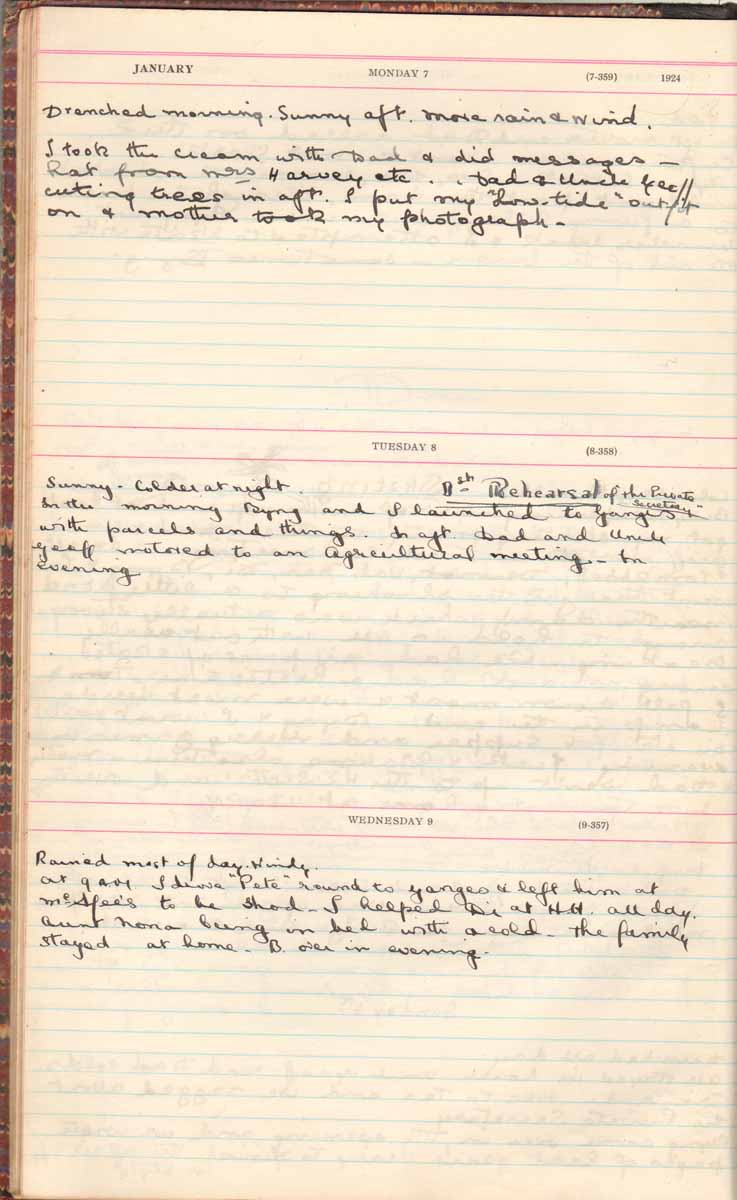 JANUARY MONDAY 7 (7-359) 1924
Drenched morning. Sunny aft. more rain & wind.
I took the cream with Dad & did messages —
hat from Mrs Harvey etc. . Dad & Uncle Geoff
cutting trees in aft. I put my "Low-tide" outfit
on & mother took my photograph –
TUESDAY 8 (8-358)
Sunny – Colder at night. 1st Rehearsal of the Private
Secretary"
In the morning and I launched to Ganges
with parcels and things. In aft. Dad and Uncle
Geoff motored to an Agricultural meeting – In
evening
WEDNESDAY 9 (9-357)
Rained most of day. Windy.
at 9 AM I drove "Pete" round to Ganges & left him at
McAfee's to be shod – I helped Di at H.H. all day.
Aunt Nona being in bed with a cold – The family
stayed at home – B. over in evening.